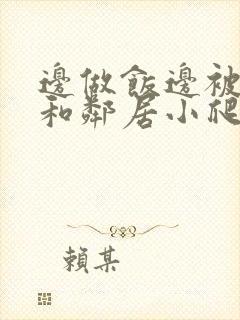 邊做飯邊被
和鄰居小爬
賴某